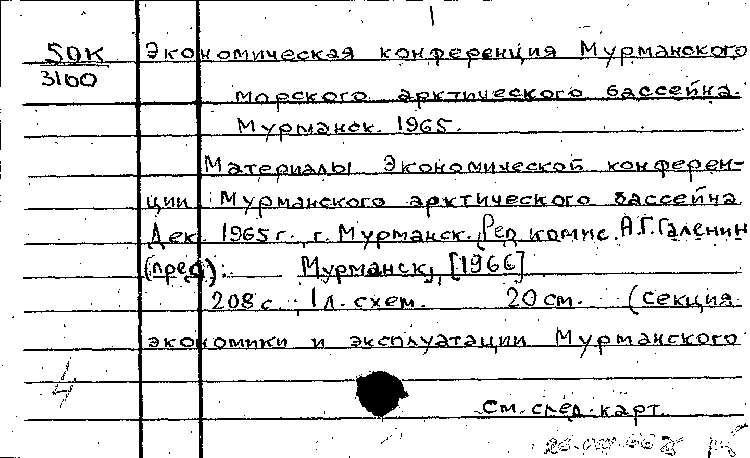 50К Экономическая конференция Мурманского
3160
морского арктического бассейна.
Мурманск. 1965.
Материалы Экономической конферен-
ции Мурманского арктического бассейна
Дек. 1965 г., г. Мурманск. [Ред. комис. А.Г. Галенин
(пред.). Мурманск, [1966]
208 с., 1 л. схем. 20 см. (Секция
экономики и эксплуатации Мурманского
4
см. след. карт